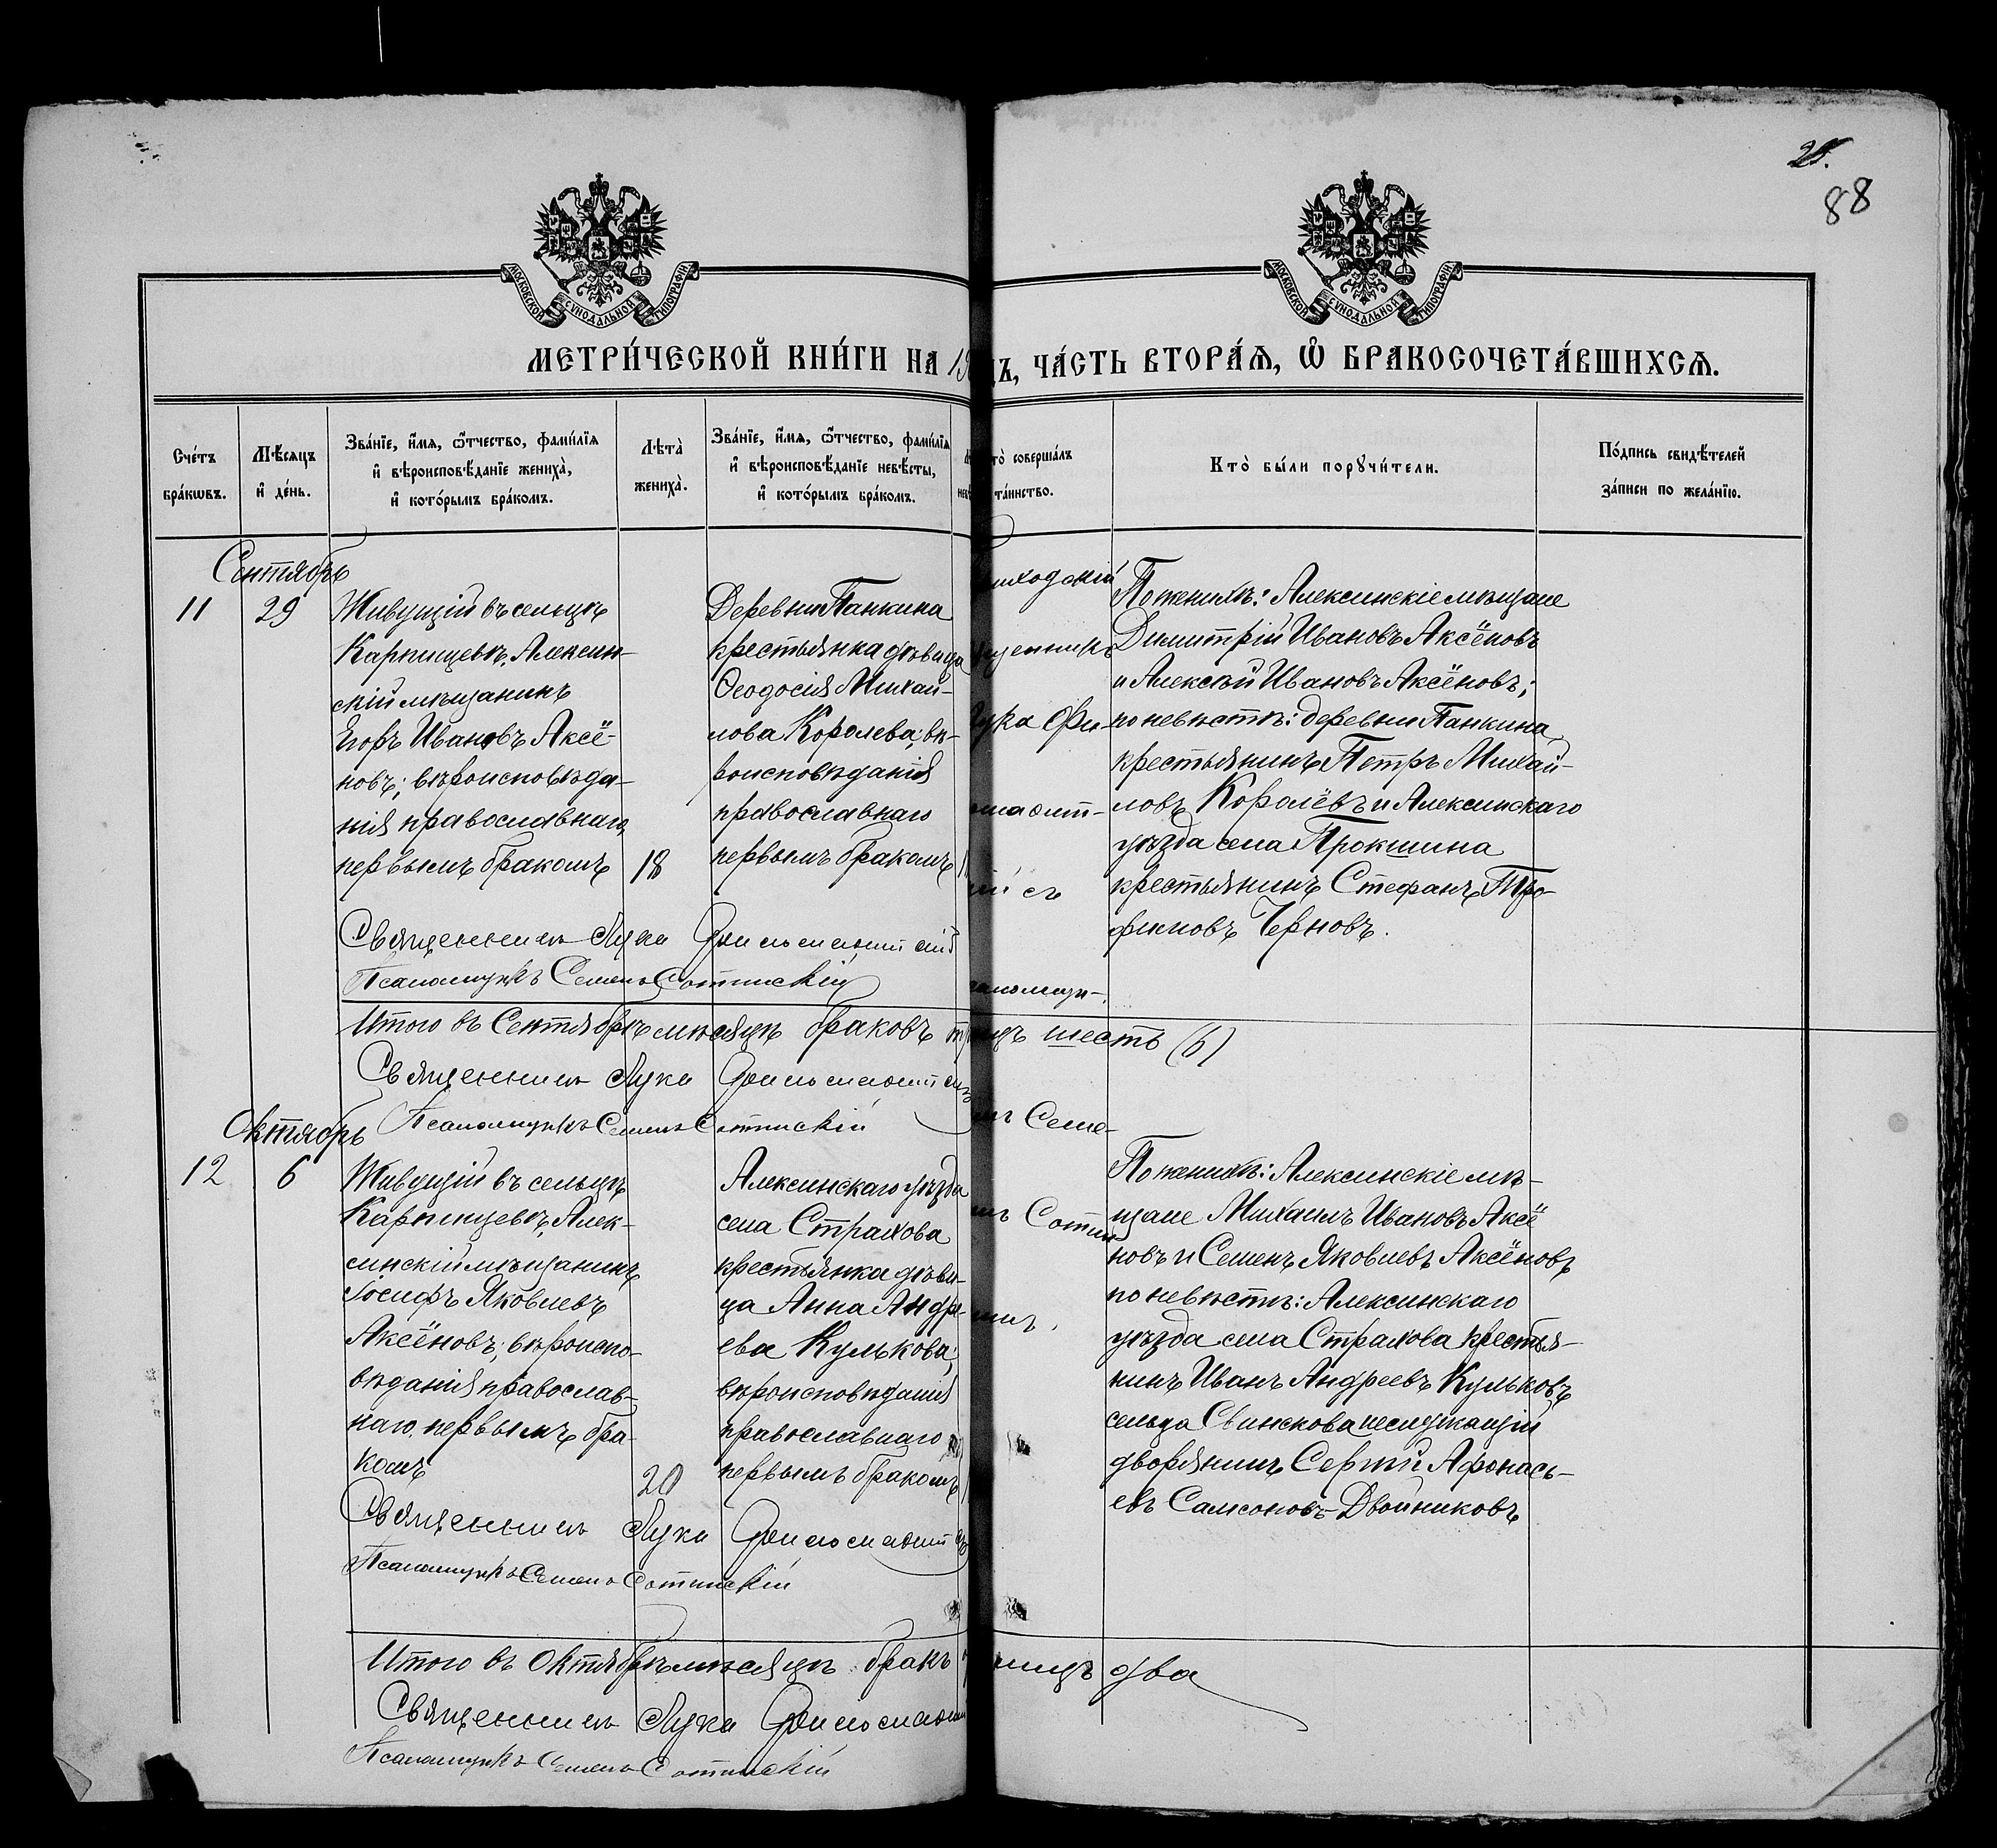 28.
88
МОСКОВСКОЙ СУНОДАЛЬНОЙ ТИПОГРАФІИ.
МОСКОВСКОЙ СУНОДАЛЬНОЙ ТИПОГРАФІИ.
МЕТРИ́ЧЕСКОЙ КНИ́ГИ НА 19
ЧА́СТЬ ВТОРА́Ѧ, Ѽ БРАКОСОЧЕТА́ВШИХСѦ.
Сче́тъ бра́кѡвъ.
Мѣ́сяцъ и҆ де́нь.
Зва́нїе, и҆́мя, ѻ҆́тчество, фами́лїя и҆ вѣроисповѣ́данїе жениха̀, и҆ кото́рымъ бра́комъ.
Лѣта̀ жениха̀.
Зва́нїе, и҆́мя, ѻ҆́тчество, фами́лїя и҆ вѣроисповѣ́данїе невѣ́сты, и҆ кото́рымъ бра́комъ.
то̀ соверша́лъ
та́инство.
Кто̀ бы́ли порꙋчи́тели.
По́дпись свидѣ́телей за́писи по жела́нїю.
Сентябрь
11
29
Живущій въ сельцѣ
Карпищевѣ, Алексин-
скій мѣщанинъ
Егоръ Ивановъ Аксё-
новъ; вѣроисповѣда-
нія православнаго,
первымъ бракомъ
18
Деревни Панкина
крестьянка дѣвица
Ѳеодосія Михай-
лова Королева; вѣ-
роисповѣданія
православнаго
первымъ бракомъ
иходскій
щенникъ
Лука Фи-
ій съ
Семе-
Сотин
По женихѣ: Алексинскіе мѣщане
Димитрій Ивановъ Аксёновъ
и Алексѣй Ивановъ Аксёновъ;
по невѣстѣ: деревни Панкина
крестьянинъ Петръ Михай-
ловъ Королёвъ и Алексинскаго
уѣзда села Прокшина
крестьянинъ Стефанъ Тро-
фимовъ Черновъ.
Священникъ Лука
Псаломщикъ Семенъ Сотинскій
Итого въ Сентябрѣ мѣсяцѣ браковъ шесть (6)
Священникъ Лука
Псаломщикъ Семенъ Сотинскій
Октябрь
12
6
Живущій въ сельцѣ
Карпищевѣ, Алек-
синскій мѣщанинъ
Іосифъ Яковлевъ
Аксёновъ; вѣроиспо-
вѣданія православ-
наго, первымъ бра-
комъ
20
Алексинскаго уѣзда
села Страхова
крестьянка дѣви-
ца Анна Андре-
ева Кулькова;
вѣроисповѣданія
православнаго,
первымъ бракомъ
По женихѣ: Алексинскіе мѣ-
щане Михаилъ Ивановъ Аксё
новъ и Семенъ Яковлевъ Аксёновъ
по невѣстѣ: Алексинскаго
уѣзда села Страхова крестья-
нинъ Иванъ Андреевъ Кульковъ
сельца Свинскова неслужащій
дворянинъ Сергѣй Афонась-
евъ Самсоновъ-Двойниковъ
Священникъ Лука
Псаломщикъ Семенъ Сотинскій
Итого въ Октябрѣ мѣсяцѣ бракъ два
Священникъ Лука
Псаломщикъ Семенъ Сотинскій